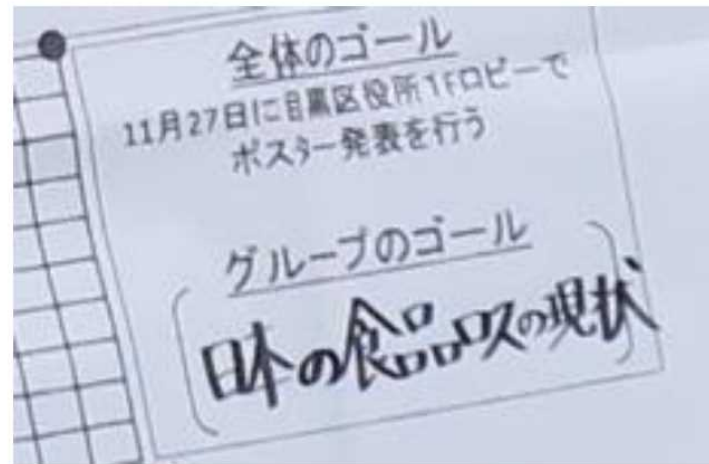 全体のゴール
11月27日に目黒区役所1Fロビーで
ポスター発表を行う
グループのゴール
日本の食品ロスの現状